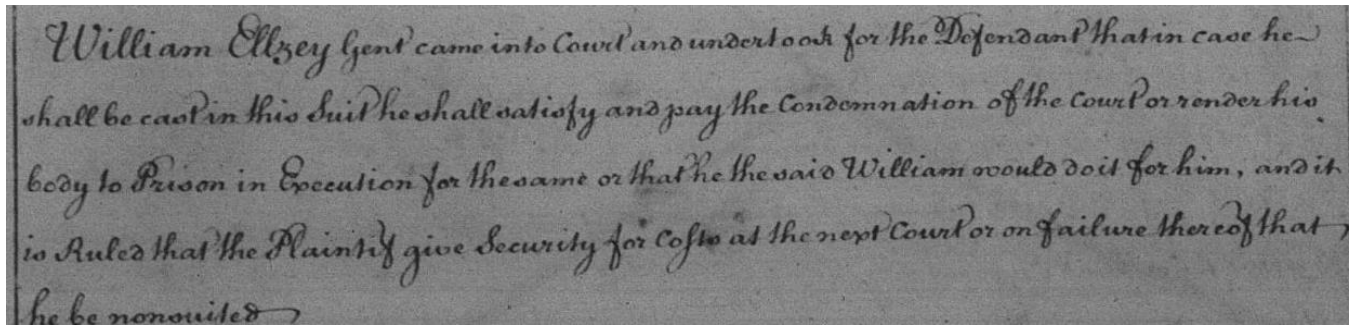 William Ellzey Gent came into Court and undertook for the Defendant that in case he
shall be cast in this Suit he shall satisfy and pay the Condemnation of the Court or render his
body to Prison in Execution for the same or that he the said William would do it for him, and it
is Ruled that the Plaintif give Security for Costs at the next Court or on failure thereof that
he be nonsuited